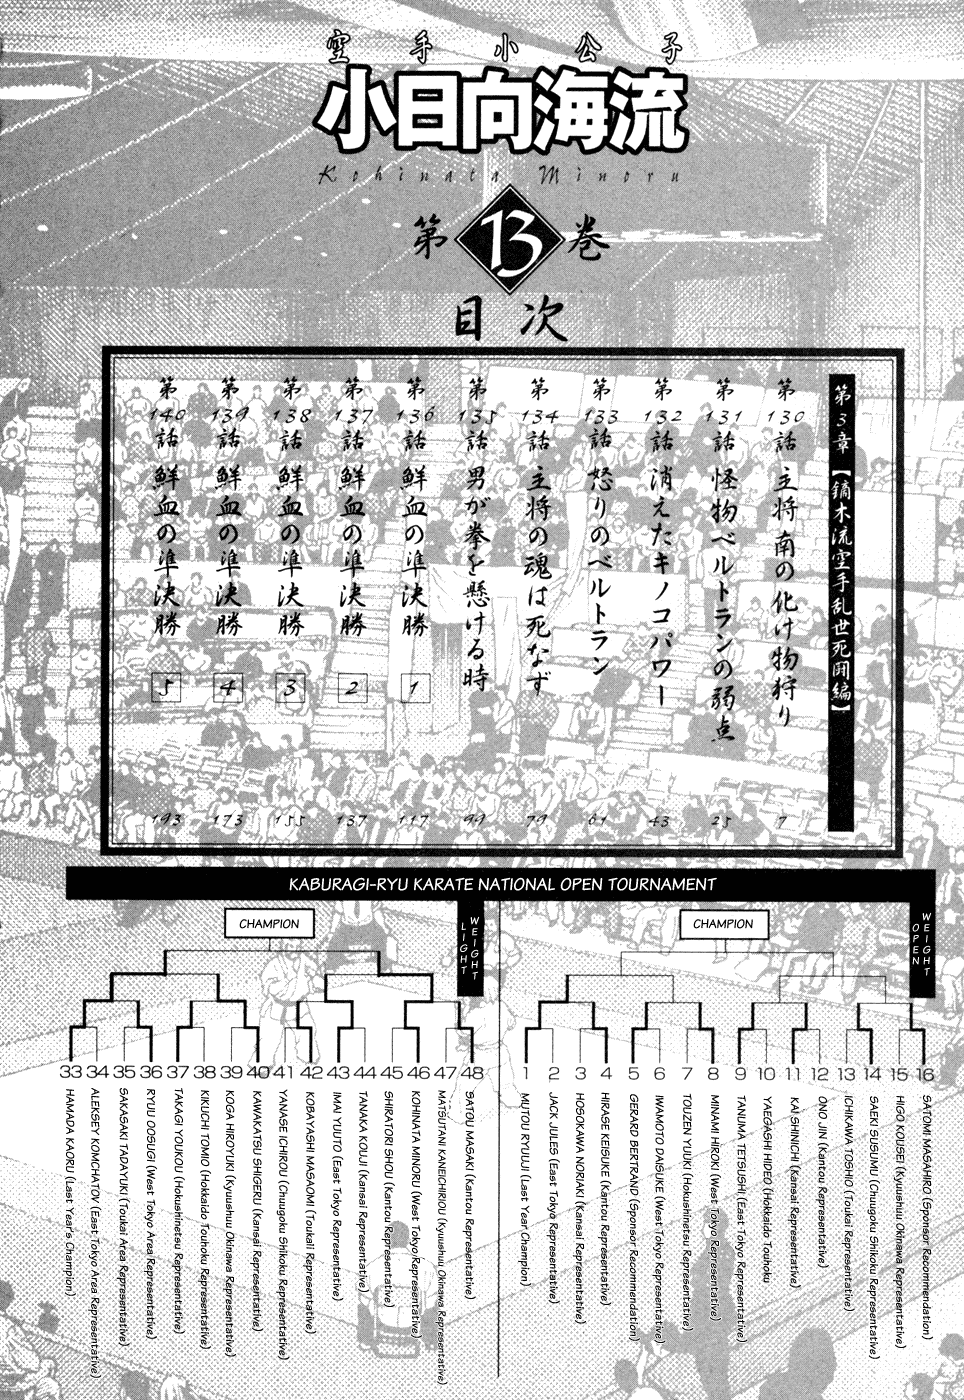 空手小公子
小日向海流
Kohinata Minoru
第13巻
目次
第3章【鏑木流空手乱世死闘編】
第130話 主将南の化け物狩り 7
第131話 怪物ベルトランの弱点 25
第132話 消えたキノコパワー 43
第133話 怒りのベルトラン 61
第134話 主将の魂は死なず 79
第135話 男が拳を懸ける時 99
第136話 鮮血の準決勝 1 117
第137話 鮮血の準決勝 2 137
第138話 鮮血の準決勝 3 155
第139話 鮮血の準決勝 4 173
第140話 鮮血の準決勝 5 193
KABURAGI-RYU KARATE NATIONAL OPEN TOURNAMENT
LIGHT WEIGHT
CHAMPION
33 HAMADA KAORU (Last Year's Champion)
34 ALEKSEY KOMCHATOV (East Tokyo Area Representative)
35 SAKASAKI TADAYUKI (Toukai Area Representative)
36 RYUU OOSUGI (West Tokyo Area Representative)
37 TAKAGI YOUKOU (Hokushinetsu Representative)
38 KIKUCHI TOMIO (Hokkaido Touhoku Representative)
39 KOGA HIROYUKI (Kyuushuu Okinawa Representative)
40 KAWAKATSU SHIGERU (Kansai Representative)
41 YANASE ICHIROU (Chuugoku Shikoku Representative)
42 KOBAYASHI MASAOMI (Toukali Representative)
43 IMAI YUUTO (East Tokyo Representative)
44 TANAKA KOUJI (Kansai Representative)
45 SHIRATORI SHOU (Kantou Representative)
46 KOHINATA MINORU (West Tokyo Representative)
47 MATSUTANI KANEICHIROU (Kyuushuu Okinawa Representative)
48 SATOU MASAKI (Kantou Representative)
OPEN WEIGHT
CHAMPION
1 MUTOU RYUUJI (Last Year Champion)
2 JACK JULES (East Tokyo Representative)
3 HOSOKAWA NORIAKI (Kansai Representative)
4 HIRASE KEISUKE (Kantou Representative)
5 GERARD BERTRAND (Sponsor Recommendation)
6 IWAMOTO DAISUKE (West Tokyo Representative)
7 TOUZEN YUUKI (Hokushinetsu Representative)
8 MINAMI HIROKI (West Tokyo Representative)
9 TANUMA TETSUSHI (East Tokyo Representative)
10 YAEGASHI HIDEO (Hokkaido Touhoku
11 KAI SHINICHI (Kansai Representative)
12 ONO JIN (Kantou Representative)
13 ICHIKAWA TOSHIO (Toukai Representative)
14 SAEKI SUSUMU (Chuugoku Shikoku Representative)
15 HIGO KOUSEI (Kyuushuu Okinawa Representative)
16 SATOMI MASAHIRO (Sponsor Recommendation)